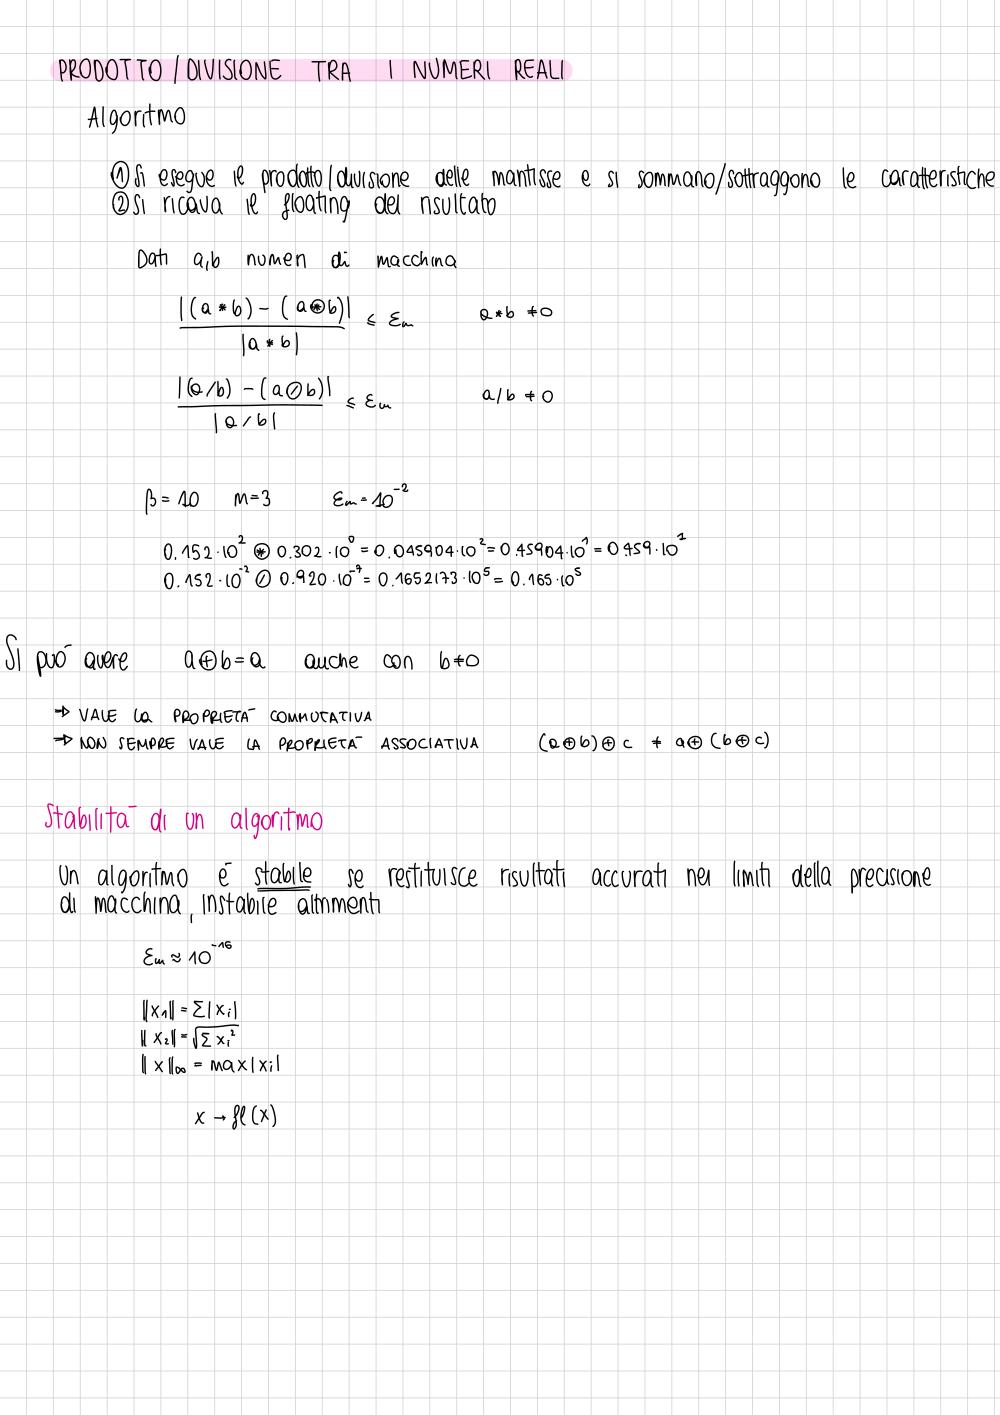 PRODOTTO / DIVISIONE TRA I NUMERI REALI
Algoritmo
① Si esegue il prodotto/divisione delle mantisse e si sommano/sottraggono le caratteristiche
② Si ricava il floating del risultato
Dati a,b numeri di macchina
|(a * b) - (a ⊛ b)| / |a * b| ≤ εm    a * b ≠ 0
|(a/b) - (a ⊘ b)| / |a/b| ≤ εm    a/b ≠ 0
β = 10   m = 3   εm = 10^-2
0.152·10^2 ⊛ 0.302·10^0 = 0.045904·10^2 = 0.45904·10^1 = 0.459·10^1
0.152·10^-2 ⊘ 0.920·10^-7 = 0.1652173·10^5 = 0.165·10^5
Si può avere a⊕b=a anche con b≠0
→ VALE LA PROPRIETÀ COMMUTATIVA
→ NON SEMPRE VALE LA PROPRIETÀ ASSOCIATIVA (a⊕b)⊕c ≠ a⊕(b⊕c)
Stabilità di un algoritmo
Un algoritmo è stabile se restituisce risultati accurati nei limiti della precisione
di macchina, instabile altrimenti
εm ≈ 10^-16
||x₁|| = Σ|xᵢ|
||x₂|| = √Σxᵢ²
||x||∞ = max|xᵢ|
x → fl(x)